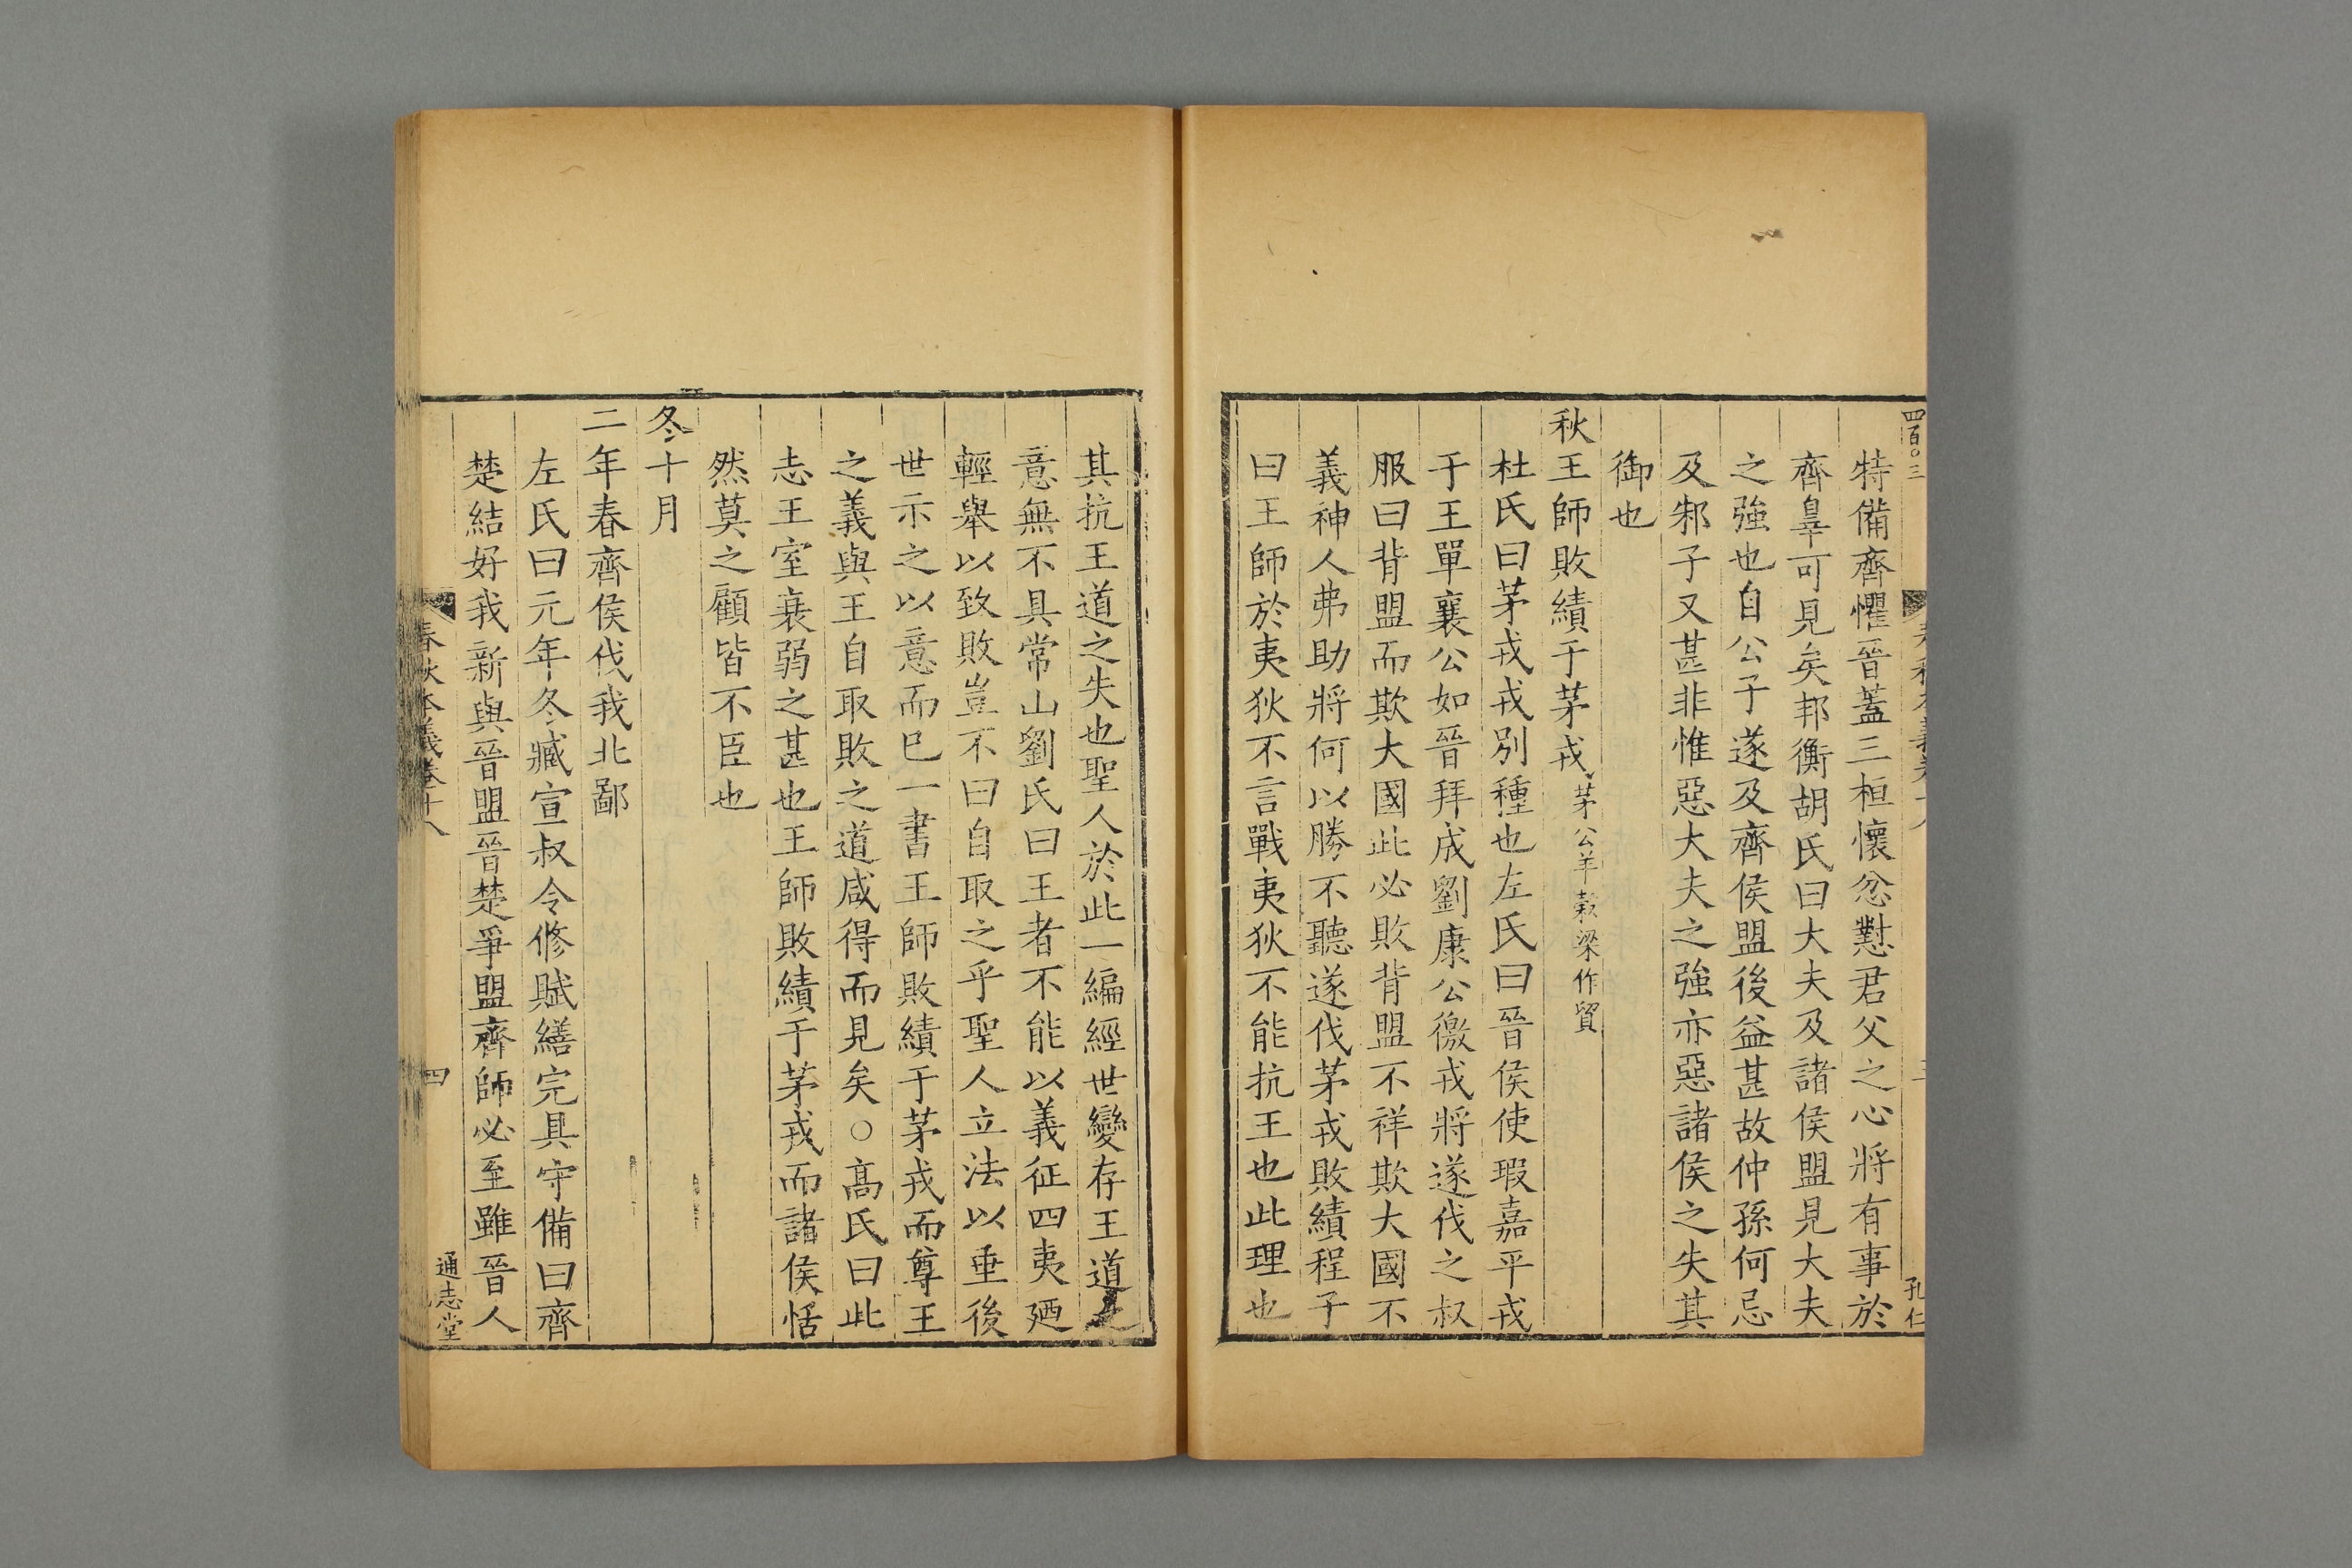 四百○三
孔仁
特備齊懼晉蓋三桓懷忿懟君父之心將有事於
齊辠可見矣邦衡胡氏曰大夫及諸侯盟見大夫
之強也自公子遂及齊侯盟後益甚故仲孫何忌
及邾子又甚非惟惡大夫之強亦惡諸侯之失其
御也
秋王師敗績于茅戎茅公羊榖梁作貿
杜氏曰茅戎戎別種也左氏曰晉侯使瑕嘉平戎
于王單襄公如晉拜成劉康公徼戎將遂伐之叔
服曰背盟而欺大國此必敗背盟不祥欺大國不
義神人弗助將何以勝不聽遂伐茅戎敗績程子
曰王師於夷狄不言戰夷狄不能抗王也此理也
其抗王道之失也聖人於此一編經世變存王道之
意無不具常山劉氏曰王者不能以義征四夷廼
輕舉以致敗豈不曰自取之乎聖人立法以垂後
世示之以意而已一書王師敗績于茅戎而尊王
之義與王自取敗之道咸得而見矣○高氏曰此
志王室衰弱之甚也王師敗績于茅戎而諸侯恬
然莫之顧皆不臣也
冬十月
二年春齊侯伐我北鄙
左氏曰元年冬臧宣叔令脩賦繕完具守備曰齊
楚結好我新與晉盟晉楚爭盟齊師必至雖晉人
春秋本義卷十八
四
通志堂